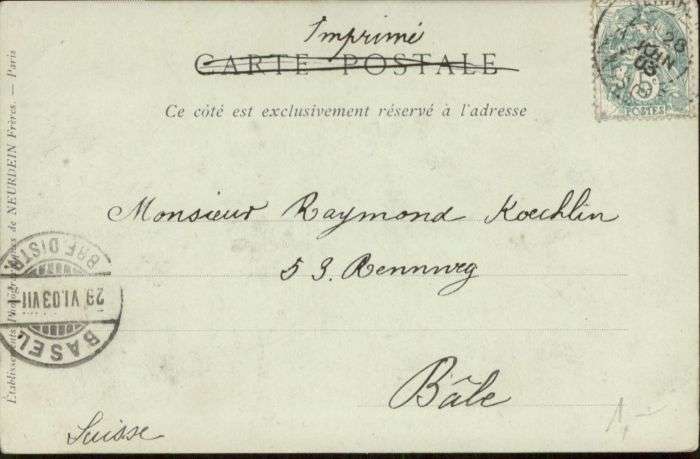 Imprimé
CARTE POSTALE
Ce côté est exclusivement réservé à l'adresse
Monsieur Raymond Koechlin
53. Rennweg
Bâle
Suisse
1,-
Établissements Photographiques de NEURDEIN Frères. — Paris
BRF. DISTR.
29.VI.03.VII
BASEL
26
JUIN
03
POSTES